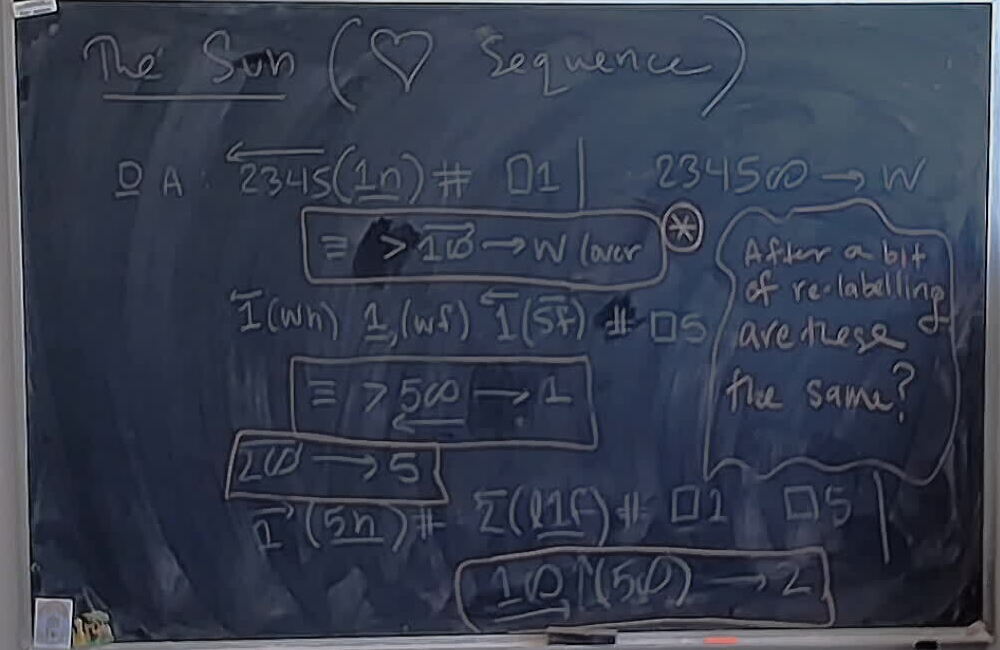 The Sun (♡ Sequence)
O A : 2345(1n) # □1 | 234500 → W
≡ > 1∞ → W (over
*
1(wn) 1,(wf) 1(5f) # □5
≡ > 5∞ → 1
2∞ → 5
1(5n)# 2(l1f)# □1 □5 |
1∞↑(5∞) → 2
After a bit
of re-labelling
are these
the same?